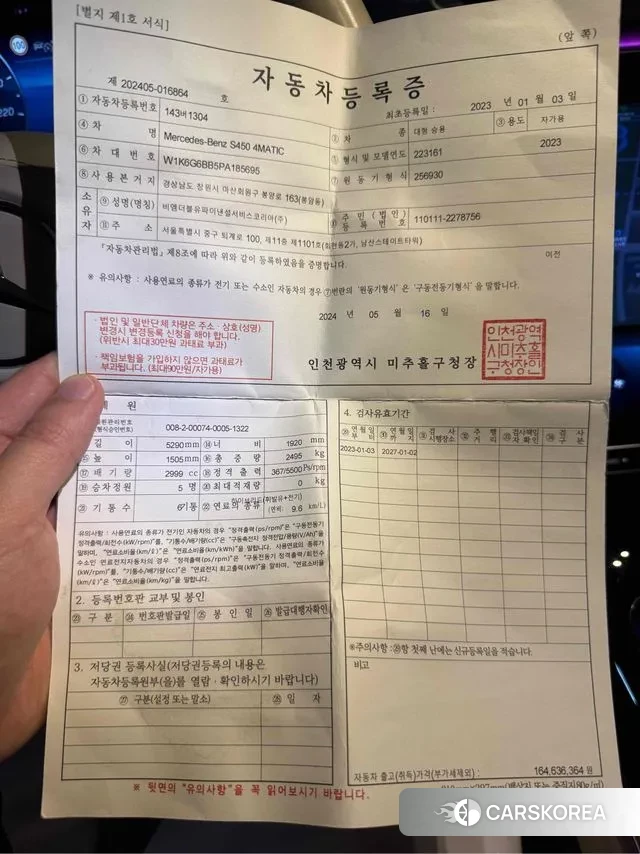 [별지 제1호 서식]
(앞 쪽)
자동차등록증
제 202405-016864 호
최초등록일 : 2023 년 01 월 03 일
① 자동차등록번호 143버1304
② 차 종 대형 승용
③ 용도 자가용
④ 차 명 Mercedes-Benz S450 4MATIC
⑤ 형식 및 모델연도 223161 2023
⑥ 차 대 번 호 W1K6G6BB5PA185695
⑦ 원 동 기 형 식 256930
⑧ 사 용 본 거 지 경상남도 창원시 마산회원구 봉양로 163(봉암동)
소유자
⑨ 성명(명칭) 비엠더블유파이낸셜서비스코리아(주)
⑩ 주 민 (법 인) 등 록 번 호 110111-2278756
⑪ 주 소 서울특별시 중구 퇴계로 100, 제11층 제1101호(회현동2가, 남산스테이트타워)
『자동차관리법』제8조에 따라 위와 같이 등록하였음을 증명합니다.
이전
※ 유의사항 : 사용연료의 종류가 전기 또는 수소인 자동차의 경우 ⑦번란의 '원동기형식' 은 '구동전동기형식' 을 말합니다.
2024 년 05 월 16 일
· 법인 및 일반단체 차량은 주소 · 상호(성명)
변경시 변경등록 신청을 해야 합니다.
(위반시 최대30만원 과태료 부과)
· 책임보험을 가입하지 않으면 과태료가
부과됩니다. (최대90만원/자가용)
인천광역시 미추홀구청장
인천광역
시미추홀
구청장인
제 원
원관리번호
(형식승인번호)
008-2-00074-0005-1322
길 이 5290 mm ⑭ 너 비 1920 mm
⑮ 높 이 1505 mm ⑯ 총 중 량 2495 kg
⑰ 배 기 량 2999 cc ⑱ 정 격 출 력 367/5500 Ps/rpm
⑲ 승차정원 5 명 ⑳ 최대적재량 0 kg
㉑ 기 통 수 6기통 ㉒ 연료의 종류 하이브리드(휘발유+전기)
(연비: 9.6 km/L)
유의사항 : 사용연료의 종류가 전기인 자동차의 경우 "정격출력(ps/rpm)"은 "구동전동기
정격출력/최고회전수(kW/rpm)"를, "기통수/배기량(cc)"은 "구동축전지 정격전압/용량(V/Ah)"을
말하며, "연료소비율(km/ℓ)"은 "연료소비율(km/kWh)"을 말합니다. 사용연료의 종류가
수소인 연료전지자동차의 경우 "정격출력(ps/rpm)"은 "구동전동기 정격출력/최고회전수
(kW/rpm)"를, "기통수/배기량(cc)"은 "연료전지 최고출력(kW)"을 말하며, "연료소비율
(km/ℓ)"은 "연료소비율(km/kg)"을 말합니다.
2. 등록번호판 교부 및 봉인
㉓ 구 분 ㉔ 번호판발급일 ㉕ 봉 인 일 ㉖ 발급대행자확인
3. 저당권 등록사실(저당권등록의 내용은
자동차등록원부(을)를 열람 · 확인하시기 바랍니다)
㉗ 구분(설정 또는 말소) ㉘ 일 자
4. 검사유효기간
2023-01-03 2027-01-02
※주의사항 : ㉙항 첫째 난에는 신규등록일을 적습니다.
비고
자동차 출고(취득)가격(부가세제외) : 164,636,364 원
※ 뒷면의 "유의사항"을 꼭 읽어보시기 바랍니다.
CARSKOREA
100
220